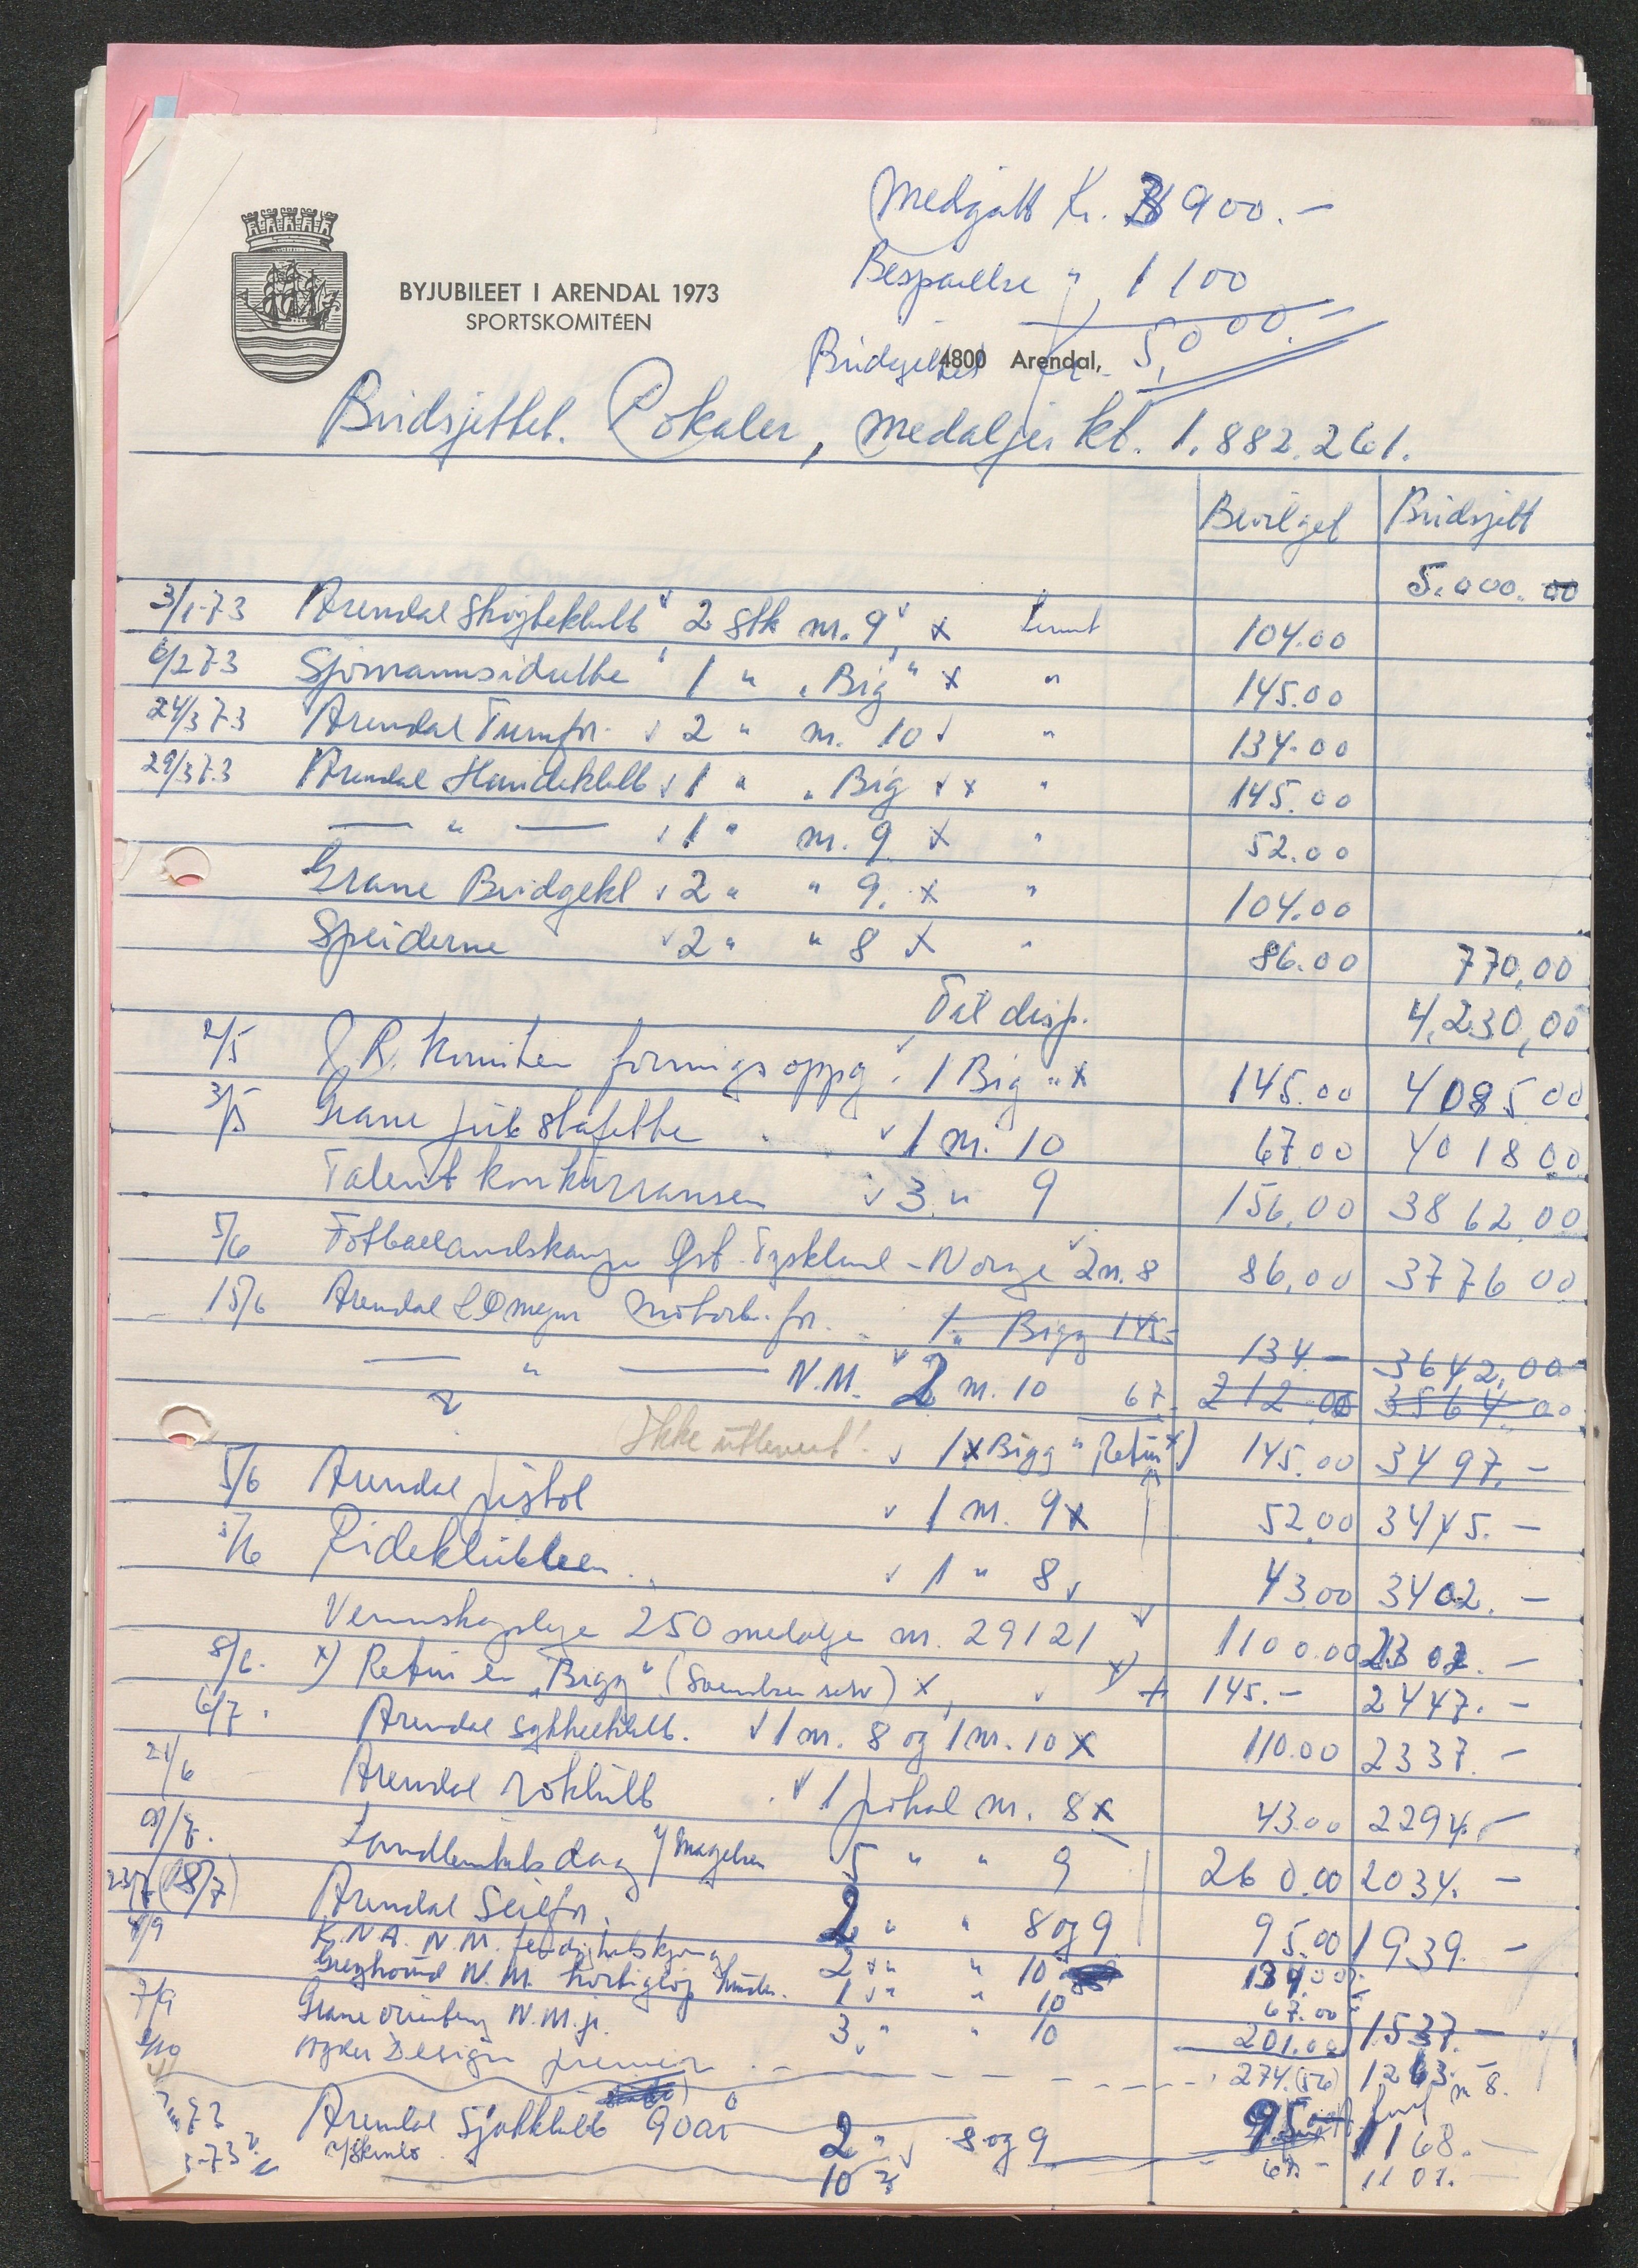 Medgått Kr. 3900.-
Besparelse " 1100
BYJUBILEET I ARENDAL 1973
SPORTSKOMITÉEN
Budsjettet Kr. 5,000.-
4800 Arendal,
Budsjettet. Pokaler, medaljer kt. 1.882.261.
Bevilget Budsjett
5.000.00
3/1-73 Arendal Skøyteklubb 2 stk nr. 9 x 104.00
6/2 73 Sjømannsidrette 1 " "Big" x " 145.00
24/3 73 Arendal Turnfor. 2 " nr. 10 " 134.00
29/3 73 Arendal Hundeklubb 1 " "Big x " 145.00
— " — 1 " nr. 9 x " 52.00
Grane Bridgekl 2 " " 9. x " 104.00
Speiderne 2 " " 8 x " 86.00 770,00
Til disp. 4,230,00
2/5 P.R. komiteen formingsoppg. 1 Big " x 145.00 4085 00
3/5 Grane jub stafette 1 nr. 10 67.00 4018 00
Talentkonkurransen 3 " 9 156,00 3862,00
5/6 Fotballandskamp Øst-Tyskland - Norge 2 nr. 8 86,00 3776 00
15/6 Arendal & Omegn Motorb. for. 1 " Bigg 145- 134.- 3642,00
— " — N.M. 2 nr. 10 67.- 212.00 3564.00
Ikke utlevert! 1 x Bigg " Retur x) 145.00 3497.-
5/6 Arendal pistol 1 nr. 9 x 52.00 3445.-
Rideklubben 1 " 8 43.00 3402.-
Vennskapsleje 250 medalje nr. 29121 1100.00 2302.-
8/6. x) Retur en "Bigg" (Svendsen serv) x x) + 145.- 2447.-
6/7. Arendal sykkelklubb. 1 nr. 8 og 1 nr. 10 x 110.00 2337.-
21/6 Arendal roklubb 1 pokal nr. 8 x 43.00 2294.-
9/7. Landleutets dag v/ Magelsen 5 " " 9 260.00 2034.-
23/7 (18/7) Arendal Seilfor. 2 " " 8 og 9 95.00 1939.-
4/9 K.N.A. N.M. 2 " " 10 134.00
Greyhound N.M. hurtigløp hunder. 1 " " 10 67.00
7/9 Grane orientering N.M. jr. 3 " " 10 201.00 1537.-
Agder Design premier 274. 1263.-
Arendal Sjakklubb 90 år 2 " 8 og 9 95.- 1168.-
10 67.- 1101.-